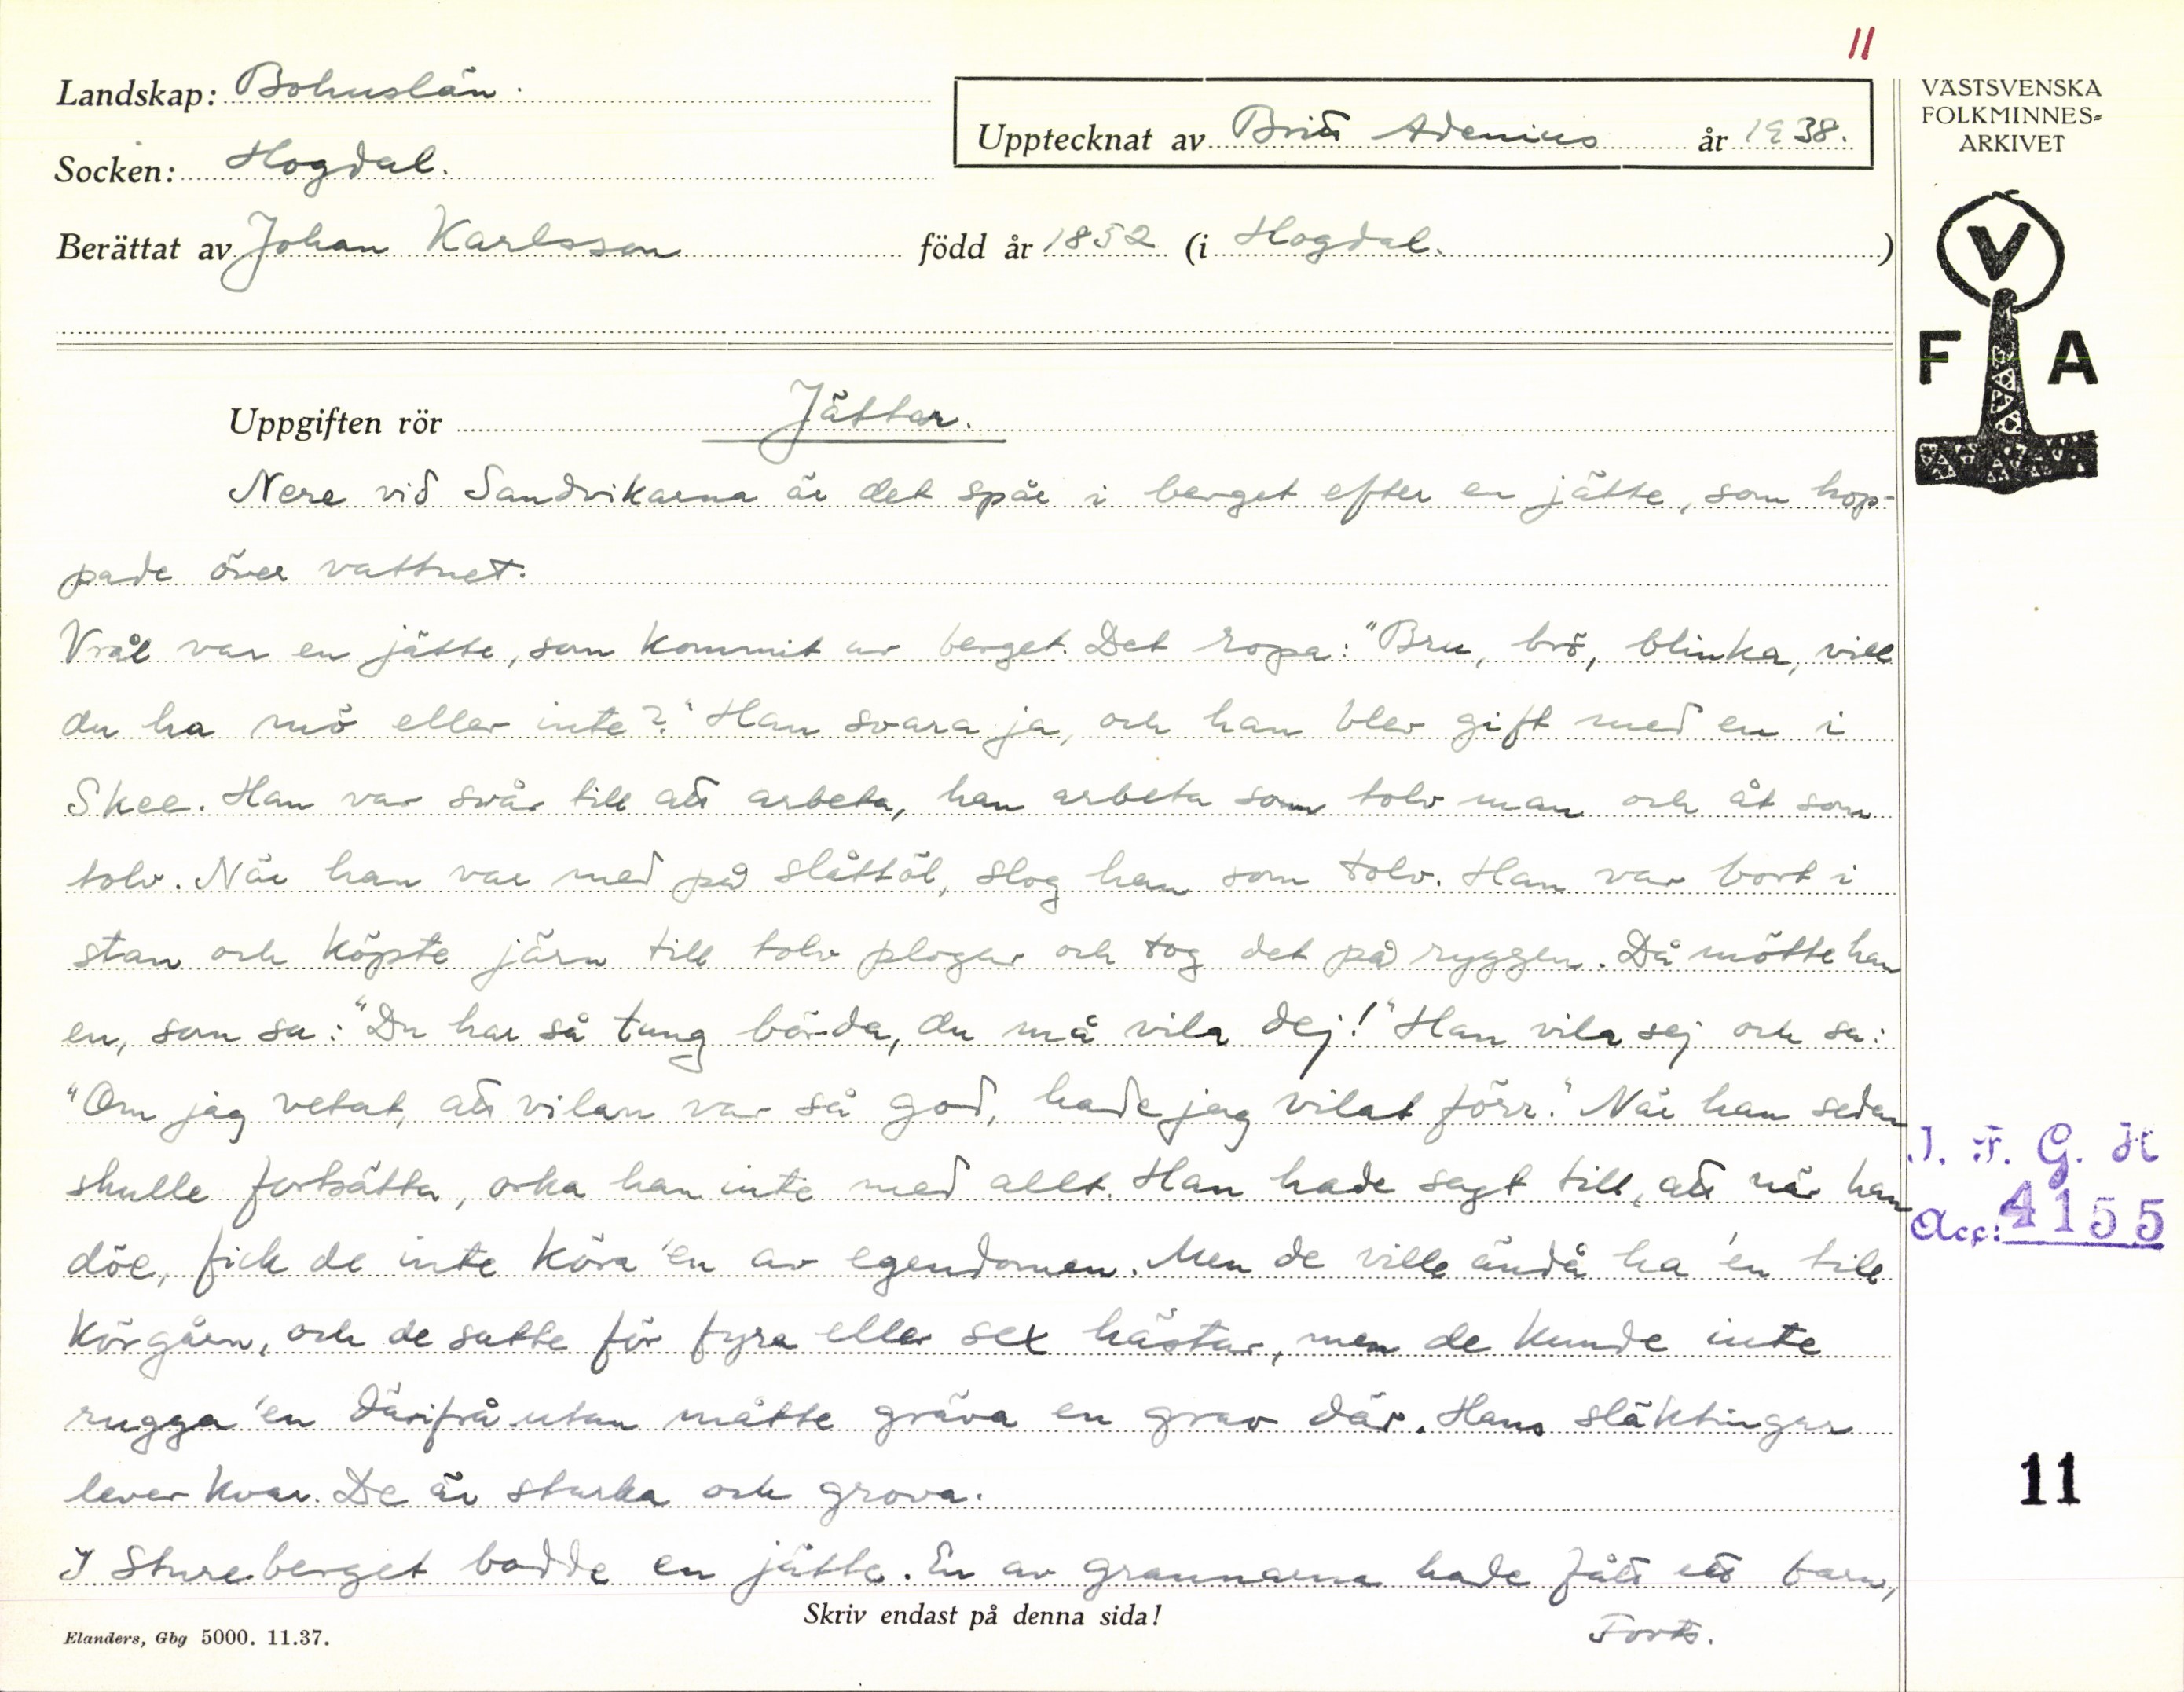 11
Landskap: Bohuslän.
Upptecknat av Britt Adenius år 1938.
Socken: Hogdal.
Berättat av Johan Karlsson född år 1852 (i Hogdal.)
VÄSTSVENSKA
FOLKMINNES=
ARKIVET
V
F A
Uppgiften rör Jättar.
Nere vid Sandvikarna är det spår i berget efter en jätte, som hop-
pade över vattnet.
Vrål var en jätte, som kommit ur berget. Det ropa: "Bru, brö, blinka, vill
du ha mö eller inte?" Han svara ja, och han blev gift med en i
Skee. Han var svår till att arbeta, han arbeta som tolv man och åt som
tolv. När han var med på slåttöl, slog han som tolv. Han var bort i
stan och köpte järn till tolv plogar och tog det på ryggen. Då mötte han
en, som sa: "Du har så tung börda, du må vila dej!" Han vila sej och sa:
"Om jag vetat, att vilan var så god, hade jag vilat förr." När han sedan
skulle fortsätta, orka han inte med allt. Han hade sagt till, att när han
döe, fick de inte köra 'en av egendomen. Men de ville ändå ha 'en till
körgårn, och de satte för fyra eller sex hästar, men de kunde inte
rugga 'en därifrå utan måtte gräva en grav där. Hans släktingar
lever kvar. De är starka och grova.
I Stureberget bodde en jätte. En av grannarna hade fått ett barn,
Forts.
Skriv endast på denna sida!
Elanders, Gbg 5000. 11.37.
I. F. G. H
Acc: 4155
11